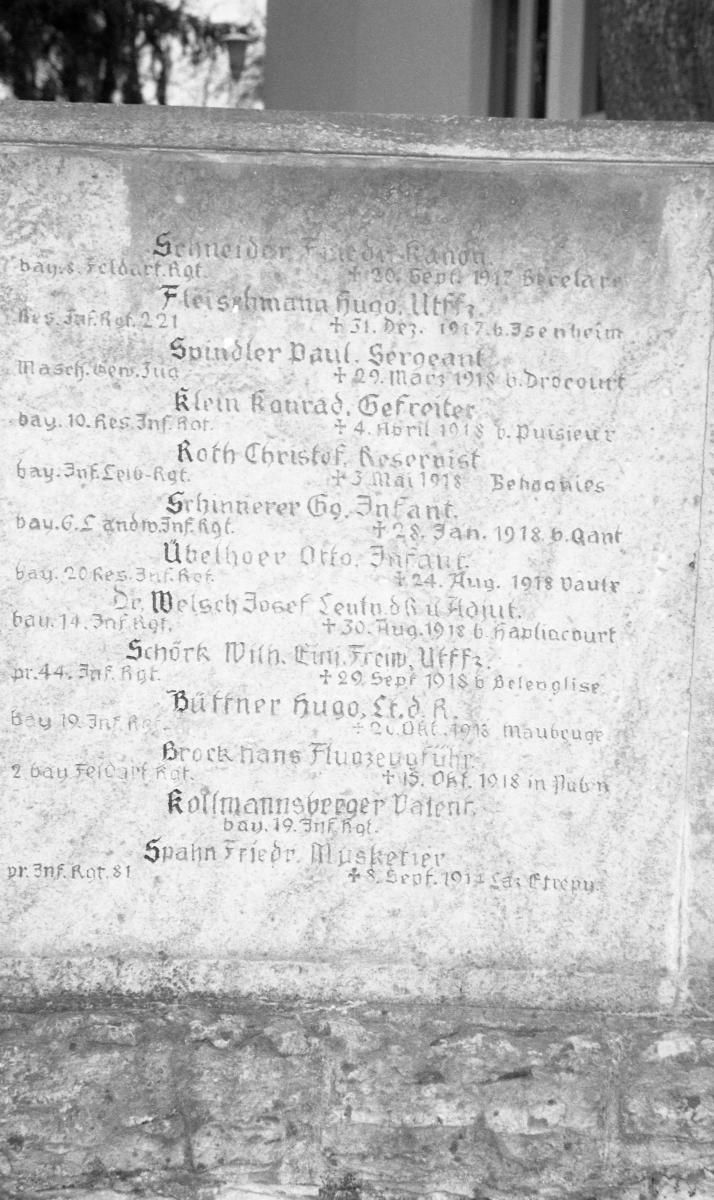 Schneider Friedr. Kanon.
bay. 8. Feldart. Rgt. + 20. Sept. 1917
Fleischmann Hugo, Utffz.
Res. Inf. Rgt. 221 + 31. Dez. 1917 b. Isenheim
Spindler Paul, Sergeant
Masch. Gew. Zug + 29. März 1918 b. Drocourt
Klein Konrad, Gefreiter
bay. 10. Res. Inf. Rgt. + 4. April 1918 b. Puisieux
Roth Christof, Reservist
bay. Inf. Leib-Rgt. + 3. Mai 1918
Schinnerer Gg. Infant.
bay. 6. Landw. Inf. Rgt. + 28. Jan. 1918 b. Gant
Übelhoer Otto, Infant.
bay. 20 Res. Inf. Rgt. + 24. Aug. 1918 Vaulx
Dr. Welsch Josef Leutn. d R u Adjut.
bay. 14. Inf. Rgt. + 30. Aug. 1918 b. Haplincourt
Schörk Wilh. Einj. Freiw. Utffz.
pr. 44. Inf. Rgt. + 29. Sept 1918 b Belenglise
Büttner Hugo, Lt. d. R.
bay 19. Inf. Rgt. Okt. 1918 Maubeuge
Brock Hans Flugzeugführ.
2 bay Feldart. Rgt. + 15. Okt. 1918 in
Kollmannsberger Valent.
bay. 19. Inf. Rgt.
Spahn Friedr. Musketier
pr. Inf. Rgt. 81 + 8. Sept. 1914 Laz Etrepy